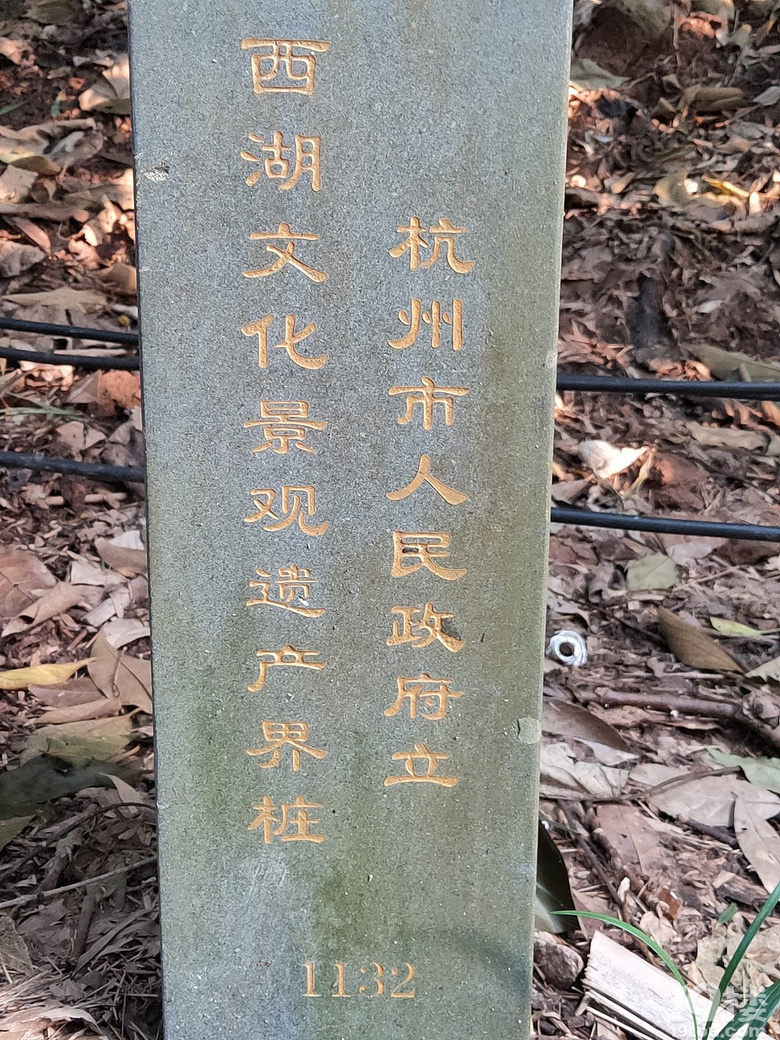 西湖文化景观遗产界桩
杭州市人民政府立
1132